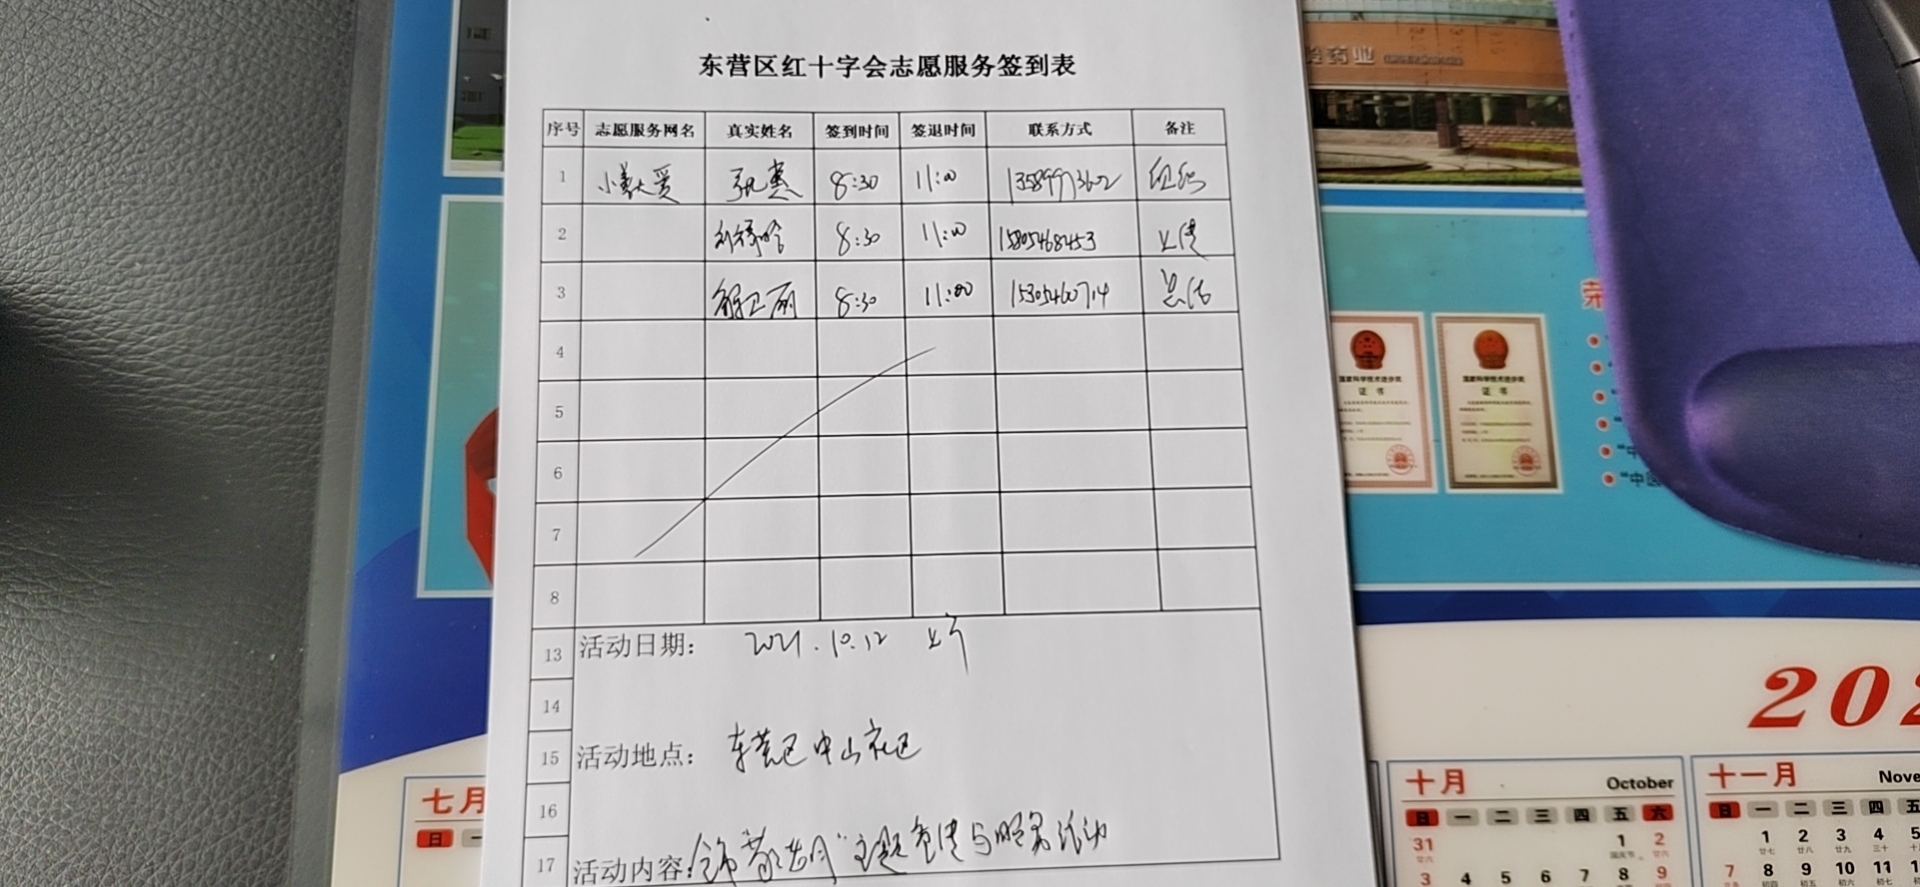 东营区红十字会志愿服务签到表
序号 志愿服务网名 真实姓名 签到时间 签退时间 联系方式 备注
1 小义大爱 张燕 8:30 11:00 13589973602 组织
2 8:30 11:00 15805468453 宣传
3 解卫丽 8:30 11:00 15305460714 总结
4
5
6
7
8
13 活动日期: 2021.10.12 上午
14
15 活动地点: 东营区中山社区
16
17 活动内容: "敬老月"主题宣传与服务活动
药业
国家科学技术进步奖
证书
国家科学技术进步奖
证书
荣
"中
"中医
202
七月
日 一
十月 October
日 一 二 三 四 五 六
31 1 2
3 4 5 6 7 8 9
十一月 Nove
日 一 二 三 四 五
1 2 3 4 5
7 8 9 10 11 1